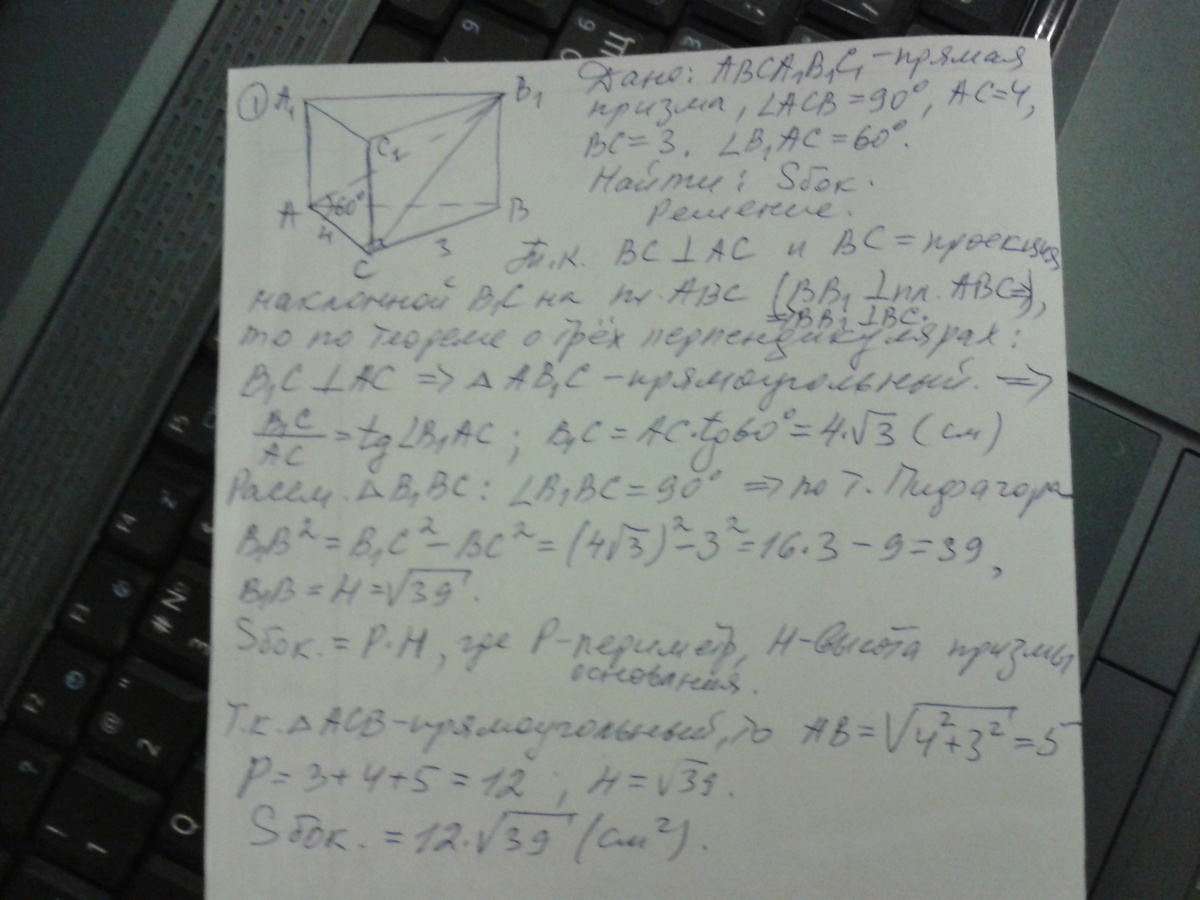 1 A₁ B₁ Дано: ABCA₁B₁C₁ - прямая
призма, ∠ACB = 90°, AC = 4,
C₁ BC = 3. ∠B₁AC = 60°.
Найти: Sбок.
A 60° B Решение.
4 3
C Т.к. BC ⊥ AC и BC = проекция
наклонной B₁C на пл. ABC (BB₁ ⊥ пл. ABC ⇒),
⇒ BB₁ ⊥ BC.
то по теореме о трёх перпендикулярах:
B₁C ⊥ AC ⇒ △ AB₁C - прямоугольный. ⇒
B₁C/AC = tg ∠B₁AC ; B₁C = AC·tg 60° = 4·√3 (см)
Рассм. △ B₁BC: ∠B₁BC = 90° ⇒ по т. Пифагора
B₁B² = B₁C² - BC² = (4√3)² - 3² = 16·3 - 9 = 39,
B₁B = H = √39.
Sбок. = P·H, где P - периметр, H - высота призмы
основания.
Т.к. △ ACB - прямоугольный, то AB = √4² + 3² = 5
P = 3 + 4 + 5 = 12 ; H = √39.
Sбок. = 12·√39 (см²).
# № 3
@ " 2
! 1
Q
F2
F3
F4
F5
6
9
Щ